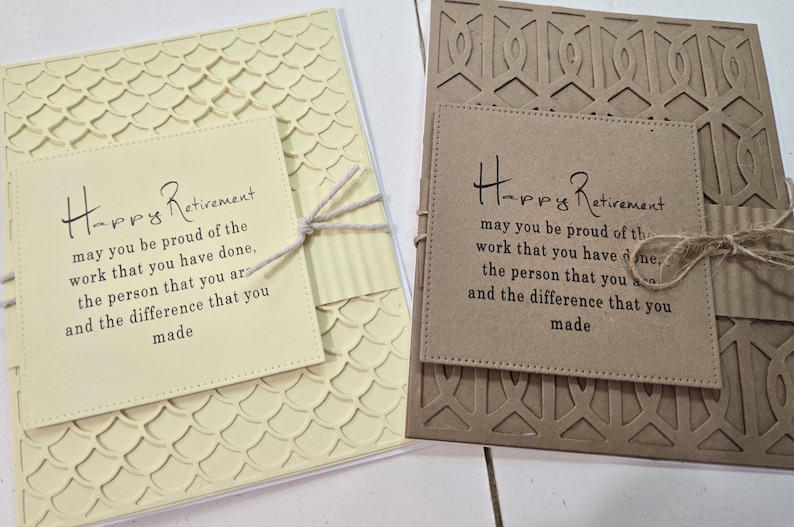 Happy Retirement
may you be proud of the
work that you have done,
the person that you are
and the difference that you
made
Happy Retirement
may you be proud of the
work that you have done,
the person that you are
and the difference that you
made